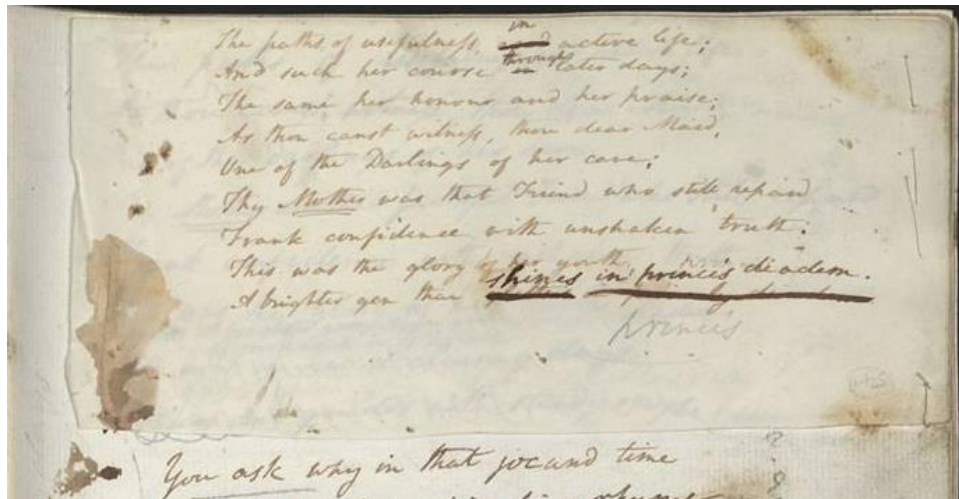 in
The paths of usefulness, and active life;
through
And such her course in later days;
The same her honour and her praise;
As thou canst witness, thou dear Maid,
One of the Darlings of her care;
Thy Mother was that Friend who still repaid
Frank confidence with unshaken truth:
This was the glory of her youth,
A brighter gem than shines in princes diadem.
princes
You ask why in that jocund time